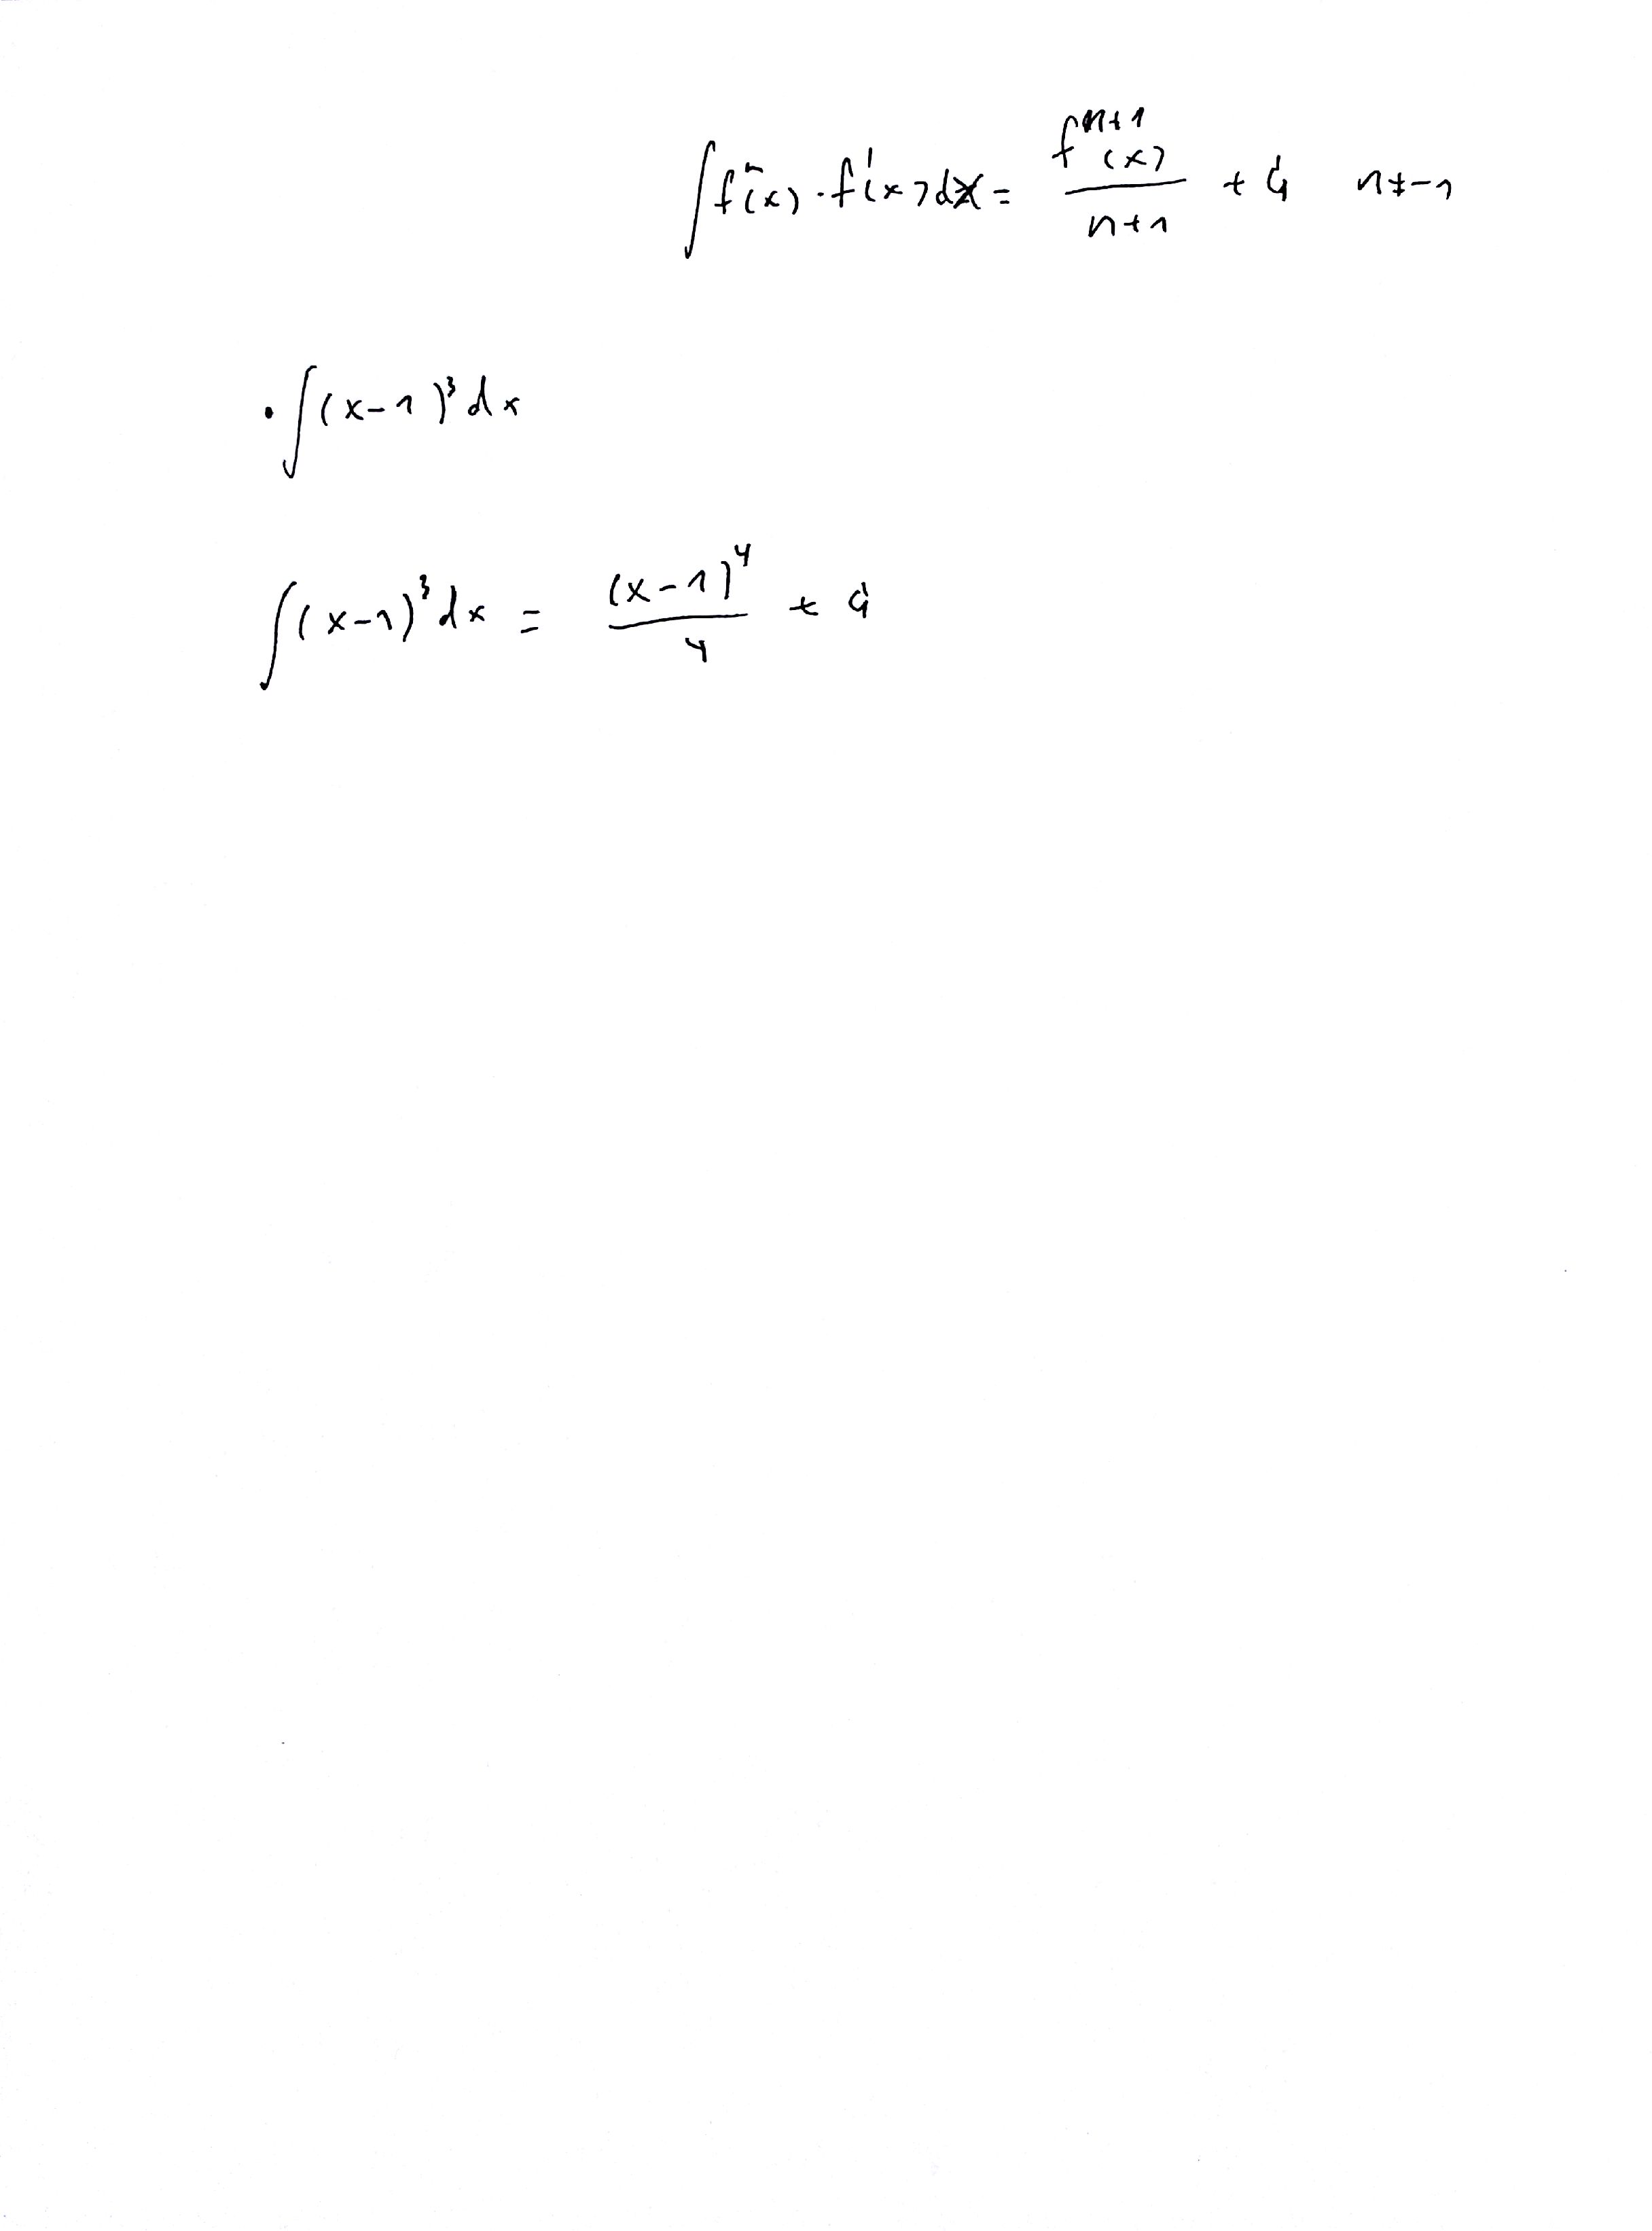 ∫ fⁿ(x) · f'(x) dx = fⁿ⁺¹(x) / (n+1) + C₁ n ≠ -1
• ∫ (x-1)³ dx
∫ (x-1)³ dx = (x-1)⁴ / 4 + C₁